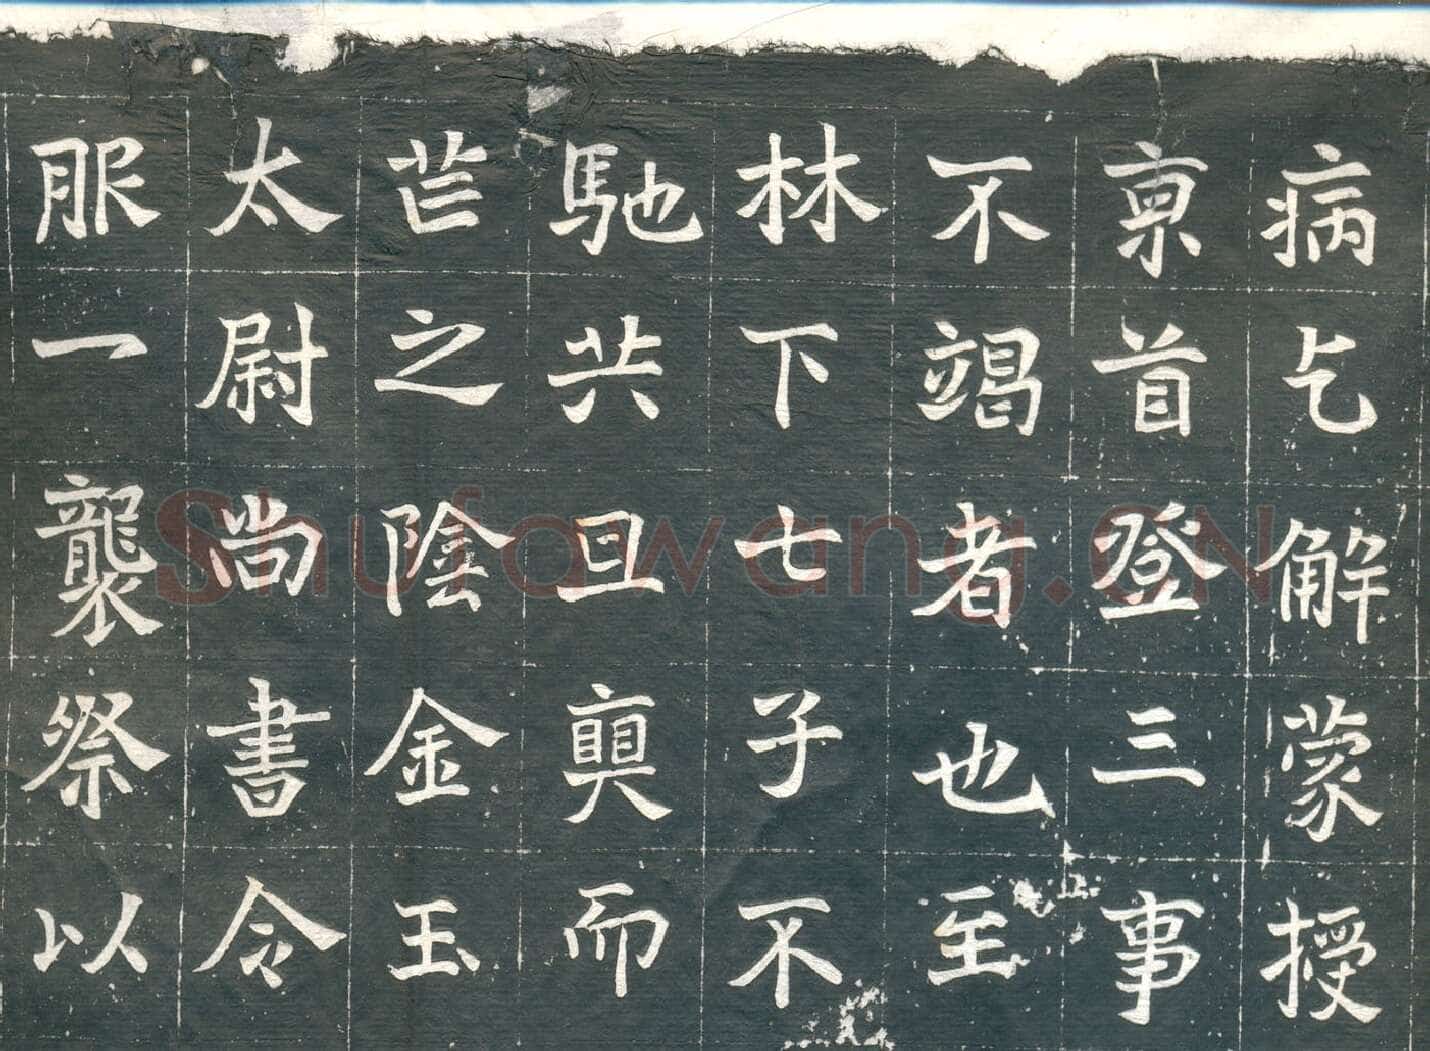 病乞解蒙授
亰首登三事
不竭者也至
林下七子不
馳共旦奭而
芒之陰金玉
太尉尚書令
服一襲祭以
Shufawang.CN